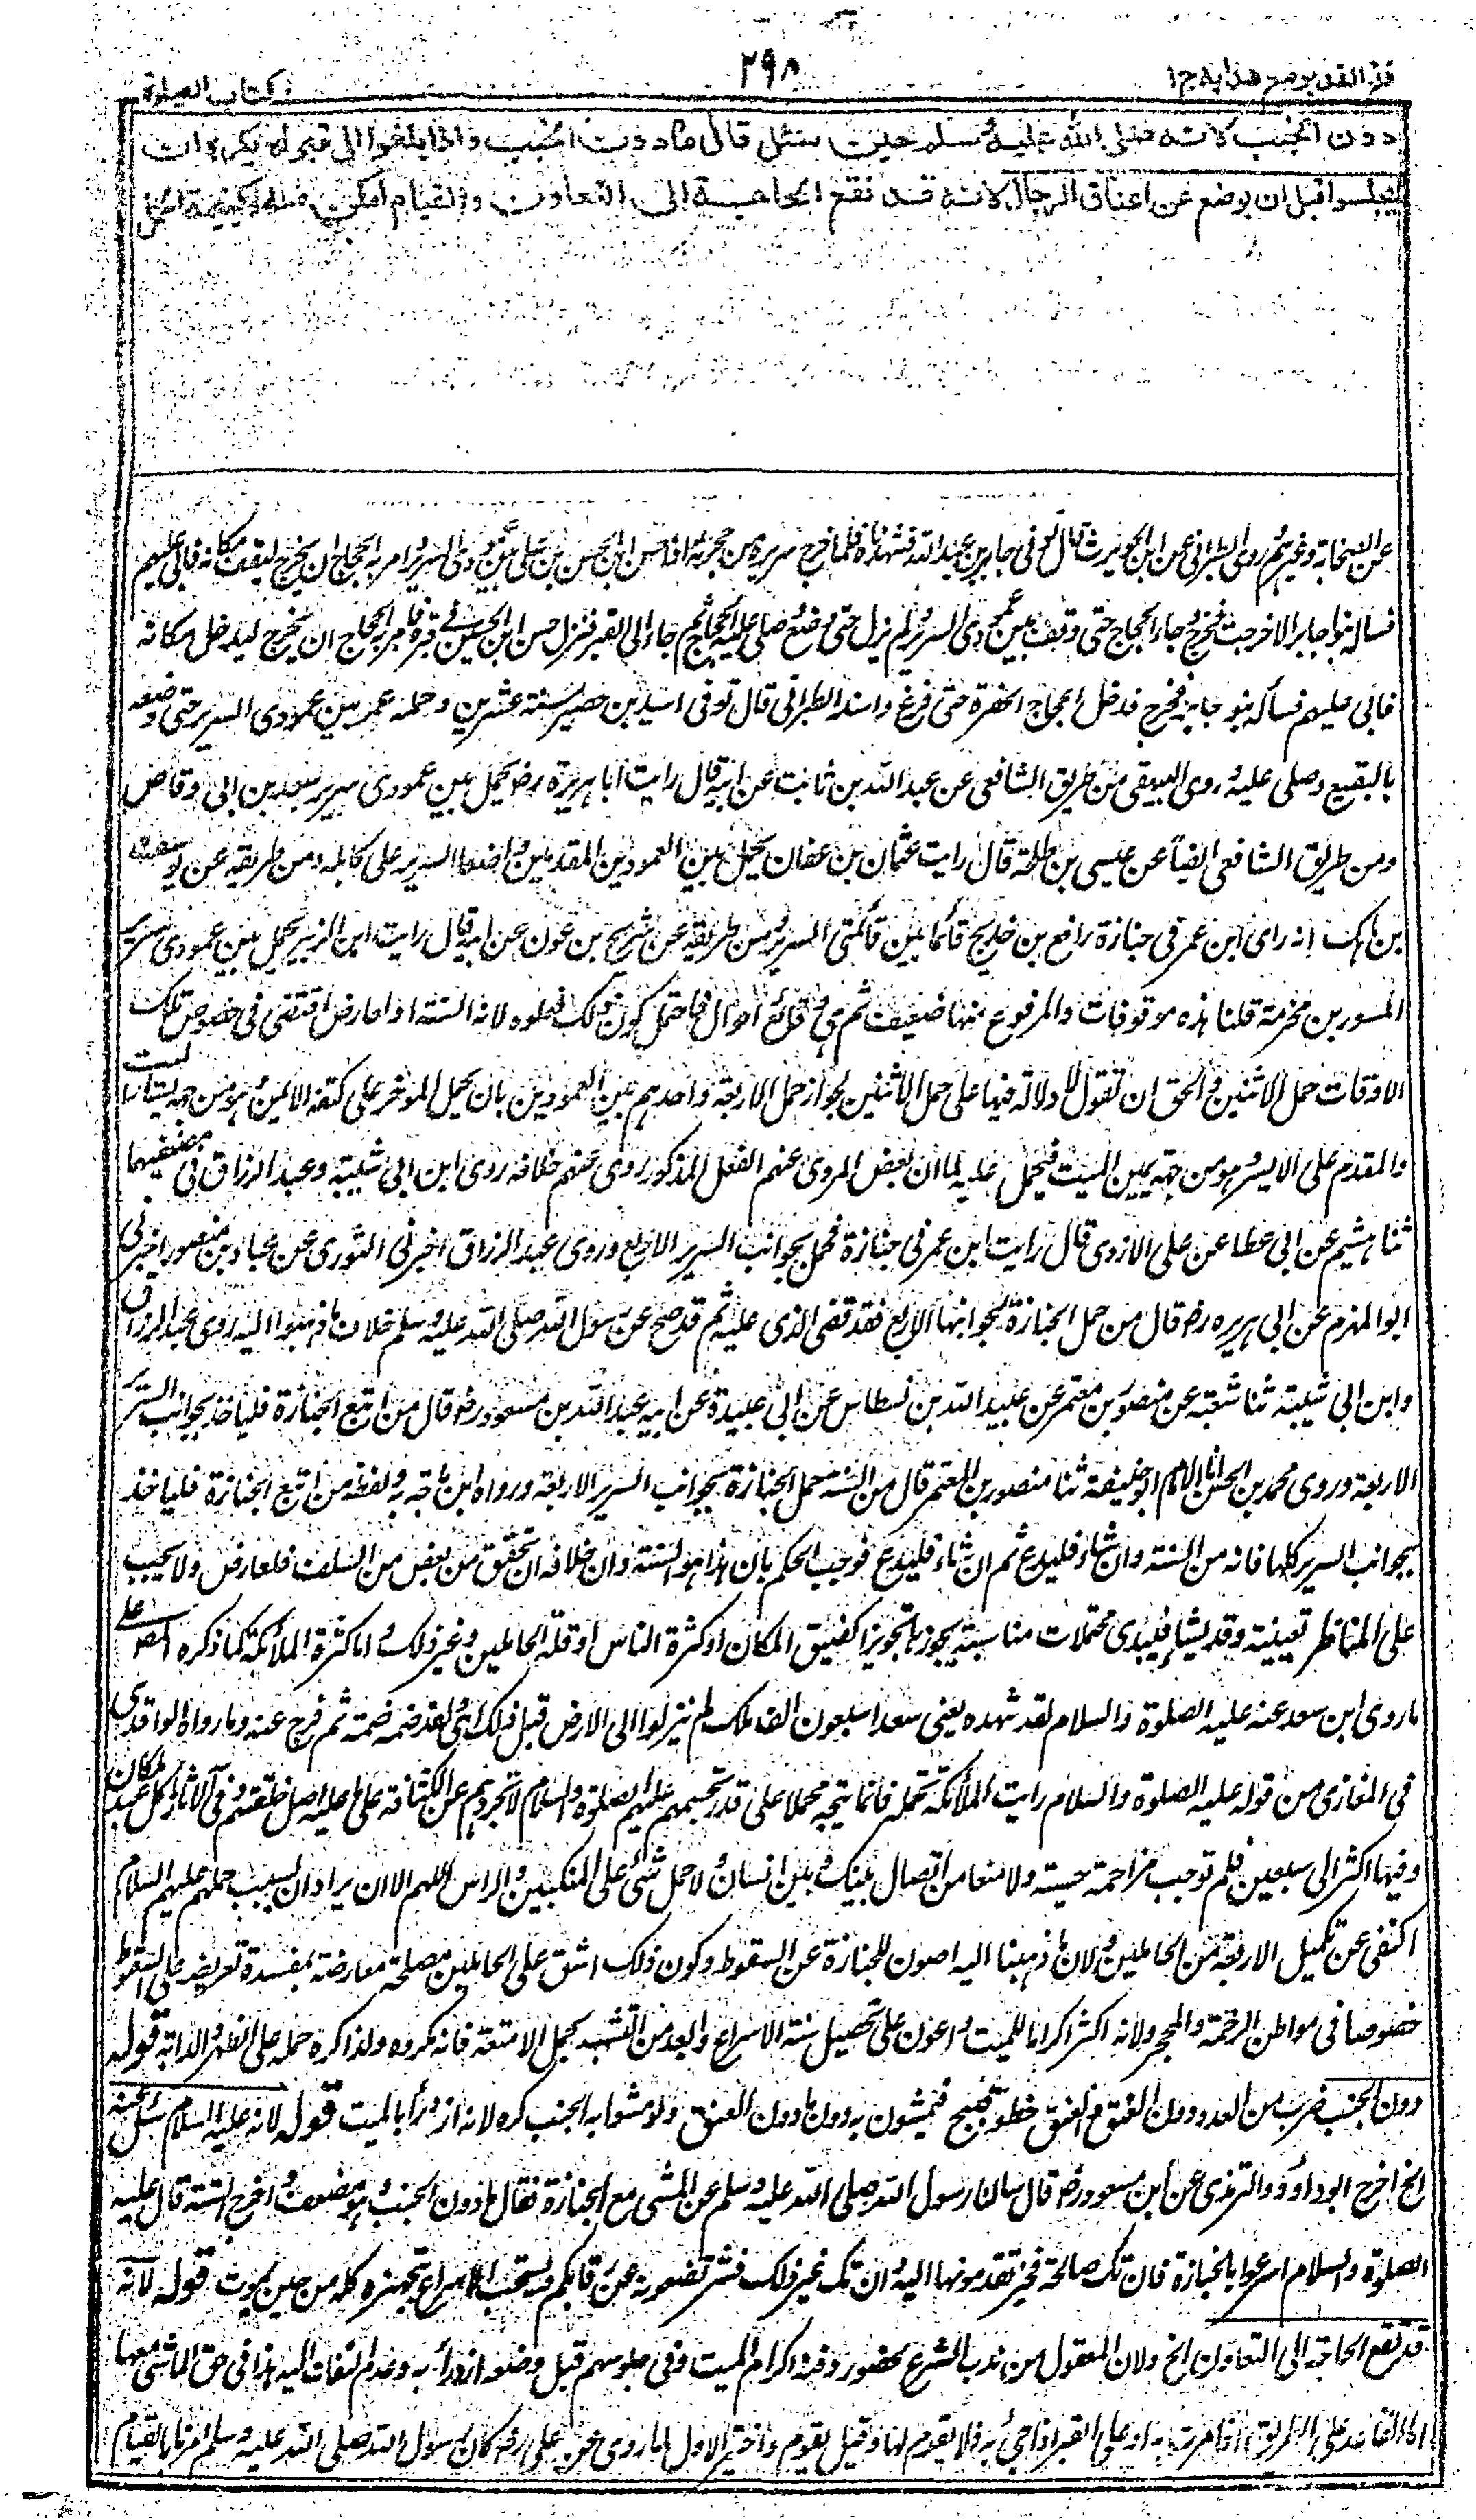 فتح القدير مع هدايه ج ١
٢٩٨
كتاب الصلوة
دون الخبب لانه صلى الله عليه وسلم حين سئل قال ما دون الخبب واذا بلغوا الى قبره يكره ان
يجلسوا قبل ان يوضع عن اعناق الرجال لانه قد تقع الحاجة الى التعاون والقيام امكن منه وكيفية الحمل
عن الصحابة وغيرهم روى الطبرانى عن ابن الحويرث قال توفى جابر بن عبد الله فشهدناه فلما خرج سريره من حجرته اذا حسن بن حسن بن على بين عمودى السرير فامر به الحجاج ان يخرج ليقف مكانه فابى عليهم
فسأله بنو جابر الا خرجت فخرج وجاء الحجاج حتى وقف بين عمودى السرير ولم يزل حتى وضع وصلى عليه الحجاج ثم جاء الى القبر فنزل حسن ابن الحسن فى قبره فامر به الحجاج ان يخرج ليدخل مكانه
فابى عليهم فسأله بنو جابر فخرج فدخل الحجاج الحفرة حتى فرغ واسند الطبرانى قال توفى اسيد بن حضير سنة عشرين وحمله عمر بين عمودى السرير حتى وضعه
بالبقيع وصلى عليه روى البيهقى من طريق الشافعى عن عبد الله بن ثابت عن ابيه قال رايت ابا هريرة رض يحمل بين عمودى سرير سعد بن ابى وقاص
ومن طريق الشافعى ايضا عن عيسى بن طلحة قال رايت عثمان بن عفان يحمل بين العمودين المقدمين واضعا السرير على كاهله ومن طريقه عن يوسف
بن ماهك انه راى ابن عمر فى جنازة رافع بن خديج قائما بين قائمتى السرير ومن طريقه عن شريح بن عون عن ابيه قال رايت ابن الزبير يحمل بين عمودى سرير
المسور بن مخرمة قلنا هذه موقوفات والمرفوع منها ضعيف ثم هى وقائع احوال فاحتمل كون ذلك فعلوه لانه السنة او لعارض اقتضى فى خصوص تلك
الاوقات حمل الاثنين والحق ان نقول لا دلالة فيها على حمل الاثنين لجواز حمل الاربعة واحدهم بين العمودين بان يحمل المؤخر على كتفه الايمن وهو من جهة يسار الميت
والمقدم على الايسر وهو من جهة يمين الميت فليحمل عليه لما ان بعض المروى عنهم الفعل المذكور روى عنهم خلافه روى ابن ابى شيبة وعبد الرزاق فى مصنفيهما
ثنا هشيم عن ابى عطاء عن على الازدى قال رايت ابن عمر فى جنازة فحمل بجوانب السرير الاربع وروى عبد الرزاق اخبرنى الثورى عن عباد بن منصور اخبرنى
ابو المهزم عن ابى هريره رض قال من حمل الجنازة بجوانبها الاربع فقد قضى الذى عليه ثم قد صح عن رسول الله صلى الله عليه وسلم خلاف ما ذهبوا اليه روى عبد الرزاق
وابن ابى شيبة ثنا شعبة عن منصور بن معتمر عن عبيد الله بن نسطاس عن ابى عبيدة عن ابيه عبد الله بن مسعود رض قال من اتبع الجنازة فلياخذ بجوانب السرير
الاربعة وروى محمد بن الحسن انا الامام ابو حنيفة ثنا منصور بن المعتمر قال من السنة حمل الجنازة بجوانب السرير الاربعة ورواه ابن ماجة به ولفظه من اتبع الجنازة فلياخذ
بجوانب السرير كلها فانه من السنة وان شاء فليدع ثم ان شاء فليدع فوجب الحكم بان هذا هو السنة وان خلافه ان تحقق من بعض من السلف فلعارض ولا يجب
على المناظر تعيينه وقد يشاء فيبدى محتملات مناسبة يجوزها تجويزا كضيق المكان او كثرة الناس او قلة الحاملين وغير ذلك واما كثرة الملائكة كما ذكره المص على
ما روى ابن سعد عنه عليه الصلوة والسلام لقد شهده يعنى سعدا سبعون الف ملك لم ينزلوا الى الارض قبل ذلك ولقد ضمه ضمة ثم فرج عنه وما رواه الواقدى
فى المغازى من قوله عليه الصلوة والسلام رايت الملائكة تحمله فانما يتجه محملا على قدر تجسمهم عليهم الصلوة والسلام لا تجردهم عن الكثافة على ما عليه اصل خلقتهم وفى الآثار ان كل عبد ملكان
وفيها اكثر الى سبعين فلم توجب مزاحمة حسية ولا منعا من اتصال بينك وبين انسان ولا حمل شئ على المنكبين والراس اللهم الا ان يراد ان بسبب حملهم عليهم السلام
اكتفى عن تكميل الاربعة من الحاملين ولان ما ذهبنا اليه اصون للجنازة عن السقوط وكون ذلك اشق على الحاملين مصلحة معارضة بمفسدة تعريضه على السقوط
خصوصا فى مواطن الزحمة والحجر ولانه اكثر اكراما للميت واعون على تحصيل سنة الاسراع وابعد من التشبه بحمل الامتعة فانه مكروه ولذا كره حمله على الظهر والدابة قوله
دون الخبب ضرب من العدو دون العنق والعنق خطو فسيح فيمشون به دون ما دون العنق ولو مشوا به الخبب كره لانه ازدراء بالميت قوله لانه عليه السلام سئل عنه
الخ اخرج ابو داؤد والترمذى عن ابن مسعود رض قال سالنا رسول الله صلى الله عليه وسلم عن المشى مع الجنازة فقال ما دون الخبب وهو مضعف واخرج الستة قال عليه
الصلوة والسلام اسرعوا بالجنازة فان تك صالحة فخير تقدمونها اليه وان تك غير ذلك فشر تضعونه عن رقابكم ويستحب الاسراع بتجهيزه كله من حين يموت قوله لانه
قد تقع الحاجة الى التعاون الخ ولان المعقول من ندب الشرع لحضور دفنه اكرام الميت وفى جلوسهم قبل وضعه ازدراء به وعدم التفات اليه هذا فى حق الماشى معها
اما القاعد على الطريق اذا مرت به او على القبر اذا جئ به فلا يقوم لها وقيل يقوم واختير الاول لما روى عن على رض كان رسول الله صلى الله عليه وسلم امرنا بالقيام